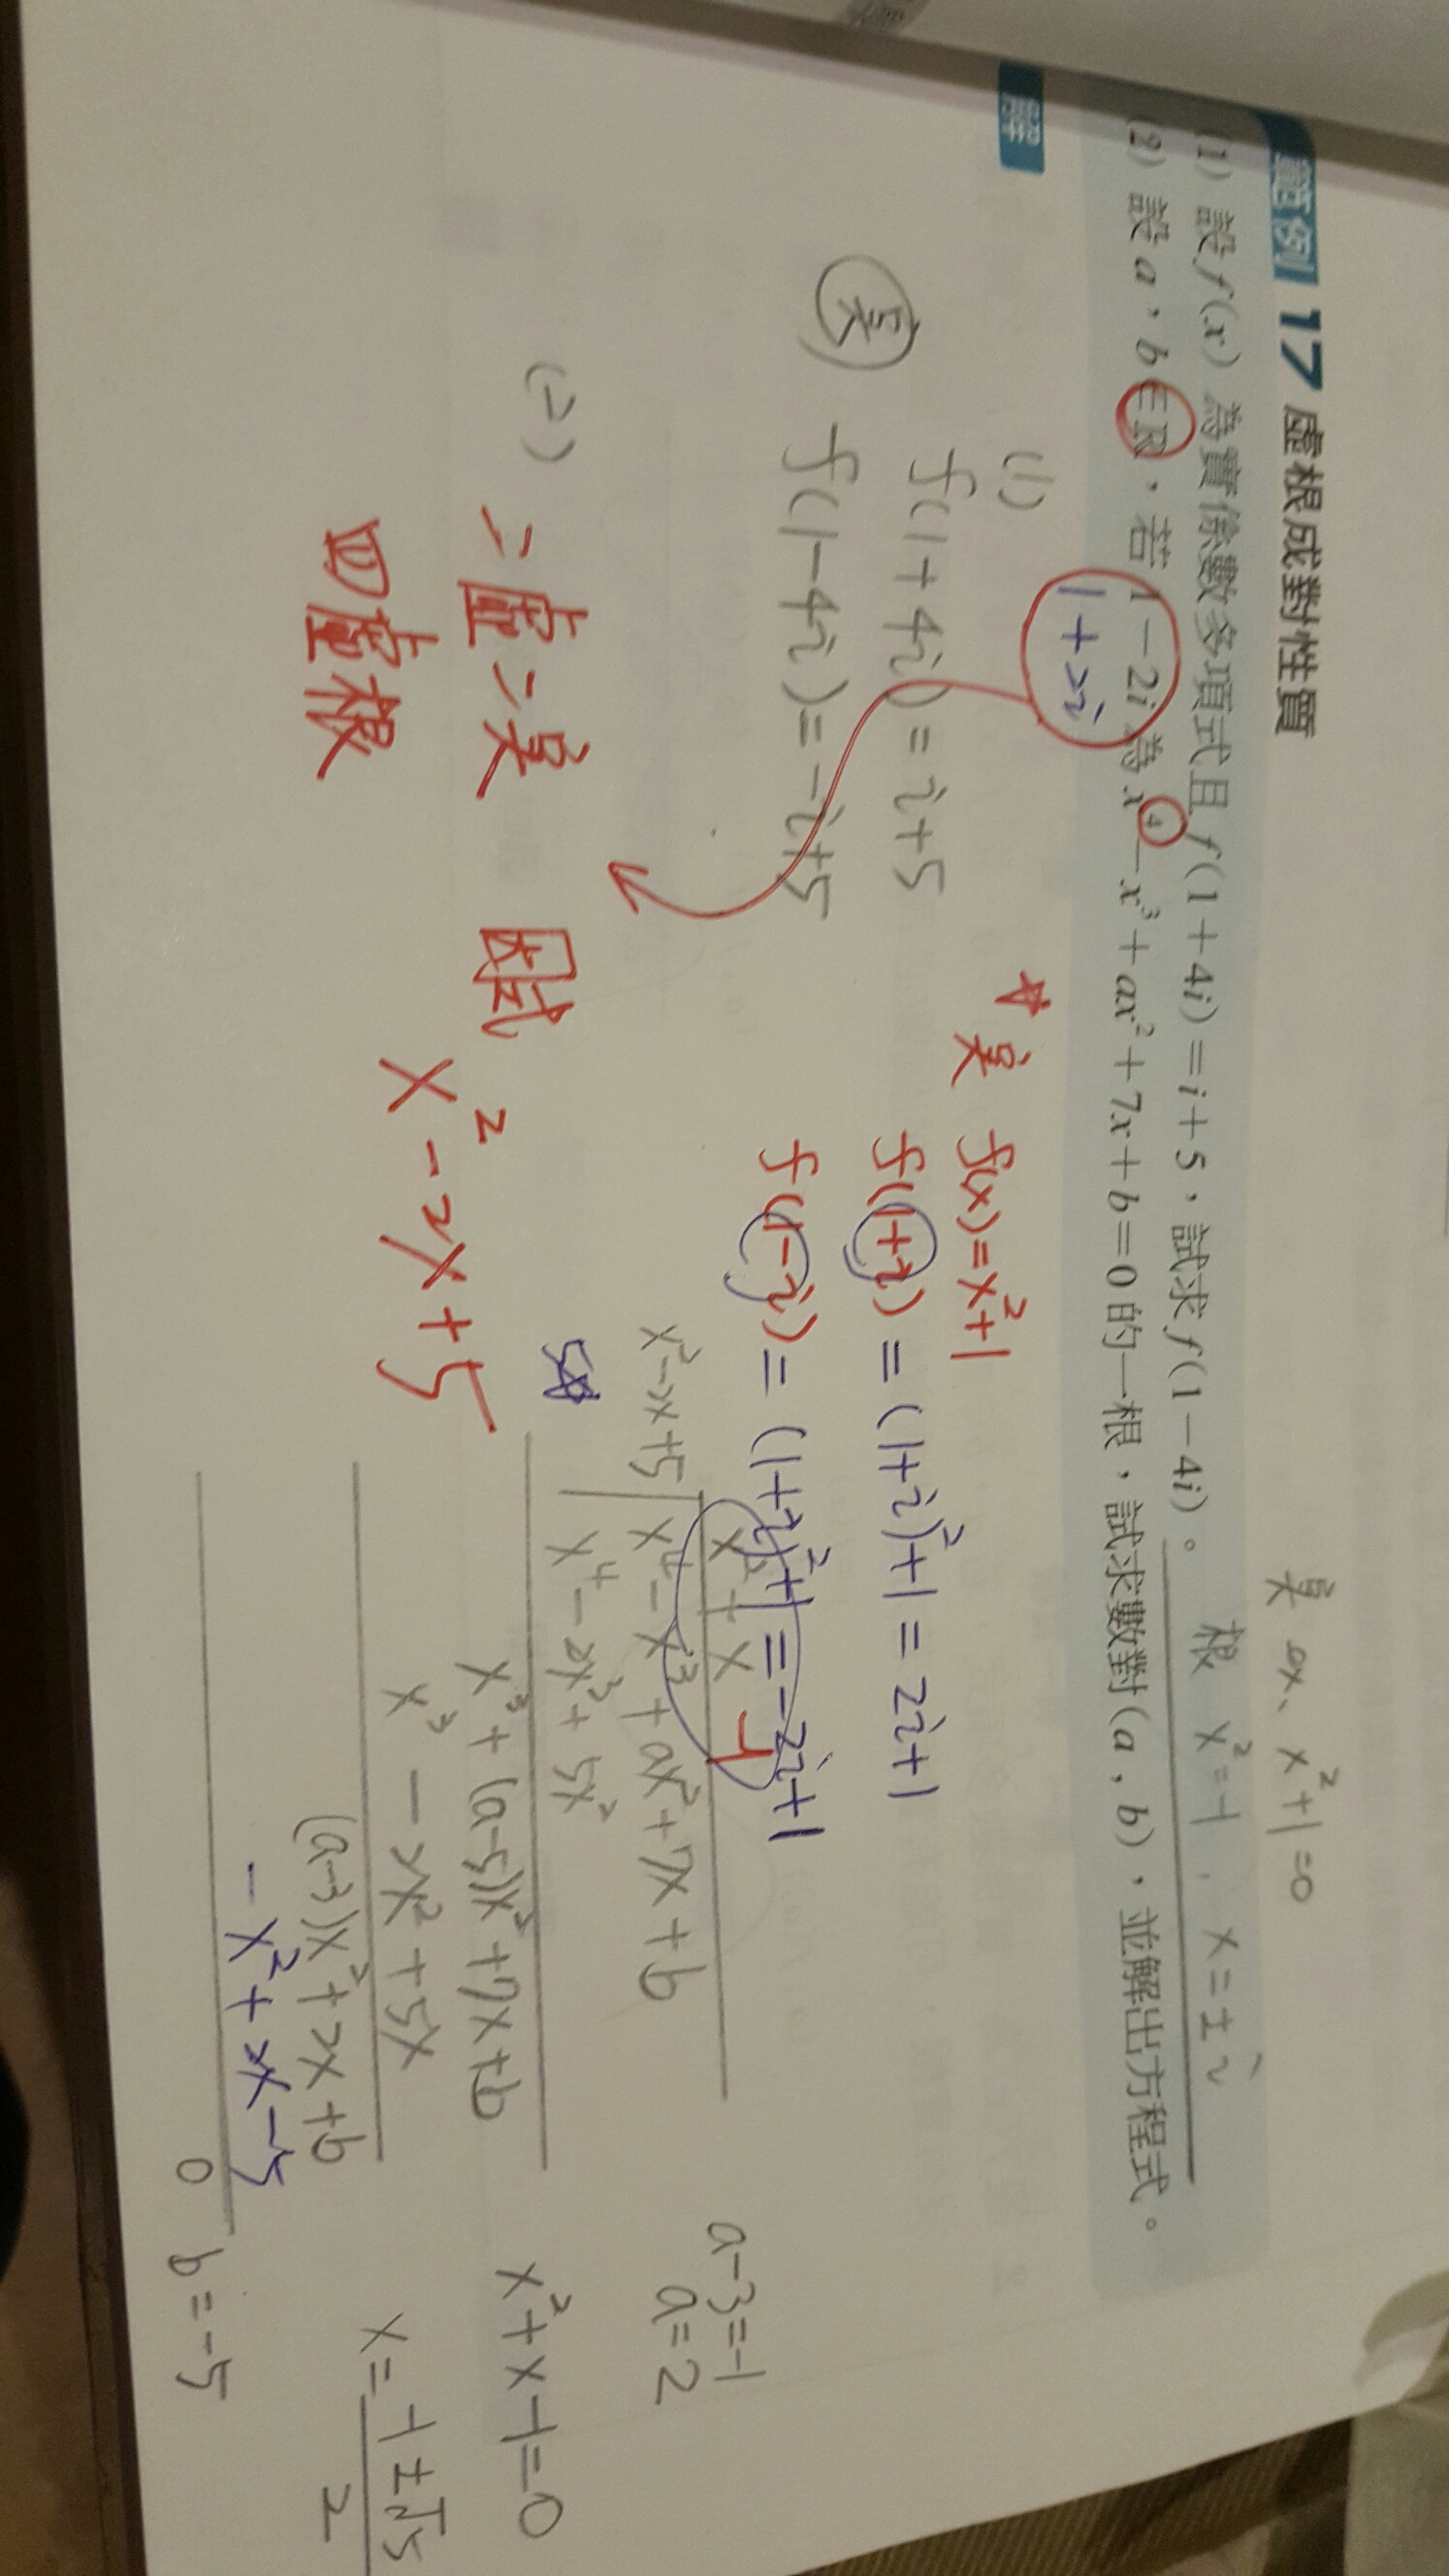 範例 17 虛根成對性質
(1) 設 f(x) 為實係數多項式且 f(1+4i)=i+5,試求 f(1-4i)。
(2) 設 a,b∈R,若 1-2i 為 x⁴-x³+ax²+7x+b=0 的一根,試求數對(a,b),並解出方程式。
x²+1=0
根 x²=-1, x=±i
1+2i
解
(1)
f(1+4i)=i+5
f(1-4i)=-i+5
f(x)=x²+1
f(1+i)=(1+i)²+1=2i+1
f(1-i)=(1+i)²+1=-2i+1
(2)
二虛二實
四虛根
因式
x²-2x+5
x²+x-1
x²-2x+5
x⁴-x³+ax²+7x+b
x⁴-2x³+5x²
x³+(a-5)x²+7x+b
x³-2x²+5x
(a-3)x²+2x+b
-x²+2x-5
0
a-3=-1
a=2
x²+x-1=0
x=-1±√5
2
b=-5